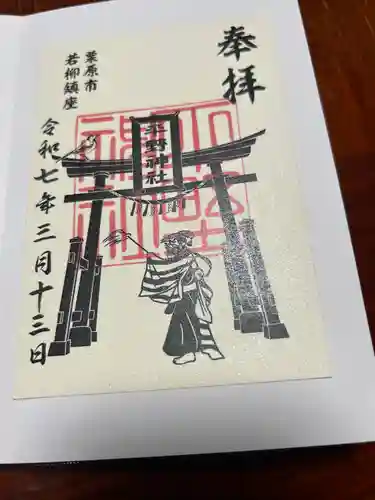 奉拝
平野神社
栗原市
若柳鎮座
令和七年三月十三日